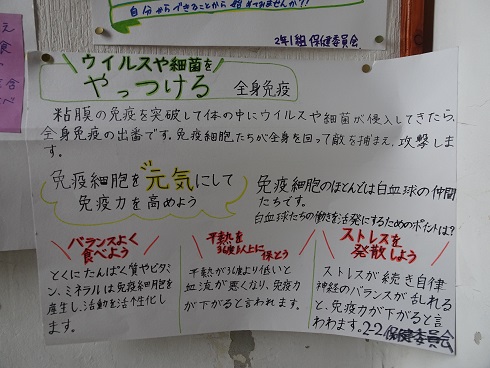 自分からできることから始めてみませんか?!
2年1組 保健委員会
ウイルスや細菌を
やっつけろ 全身免疫
粘膜の免疫を突破して体の中にウイルスや細菌が侵入してきたら、
全身免疫の出番です。免疫細胞たちが全身を回って敵を捕まえ、攻撃しま
す。
免疫細胞を元気にして
免疫力を高めよう
免疫細胞のほとんどは白血球の仲間
たちです。
白血球たちの働きを活発にするためのポイントは?
バランスよく
食べよう
とくにたんぱく質やビタミ
ン、ミネラルは免疫細胞を
産生し、活動を活性化し
ます。
平熱を
36度以上に
保とう
平熱が36度より低いと
血流が悪くなり、免疫力
が下がると言われます。
ストレスを
発散しよう
ストレスが続き自律
神経のバランスが乱れる
と、免疫力が下がると言
われます。
2-2 保健委員会